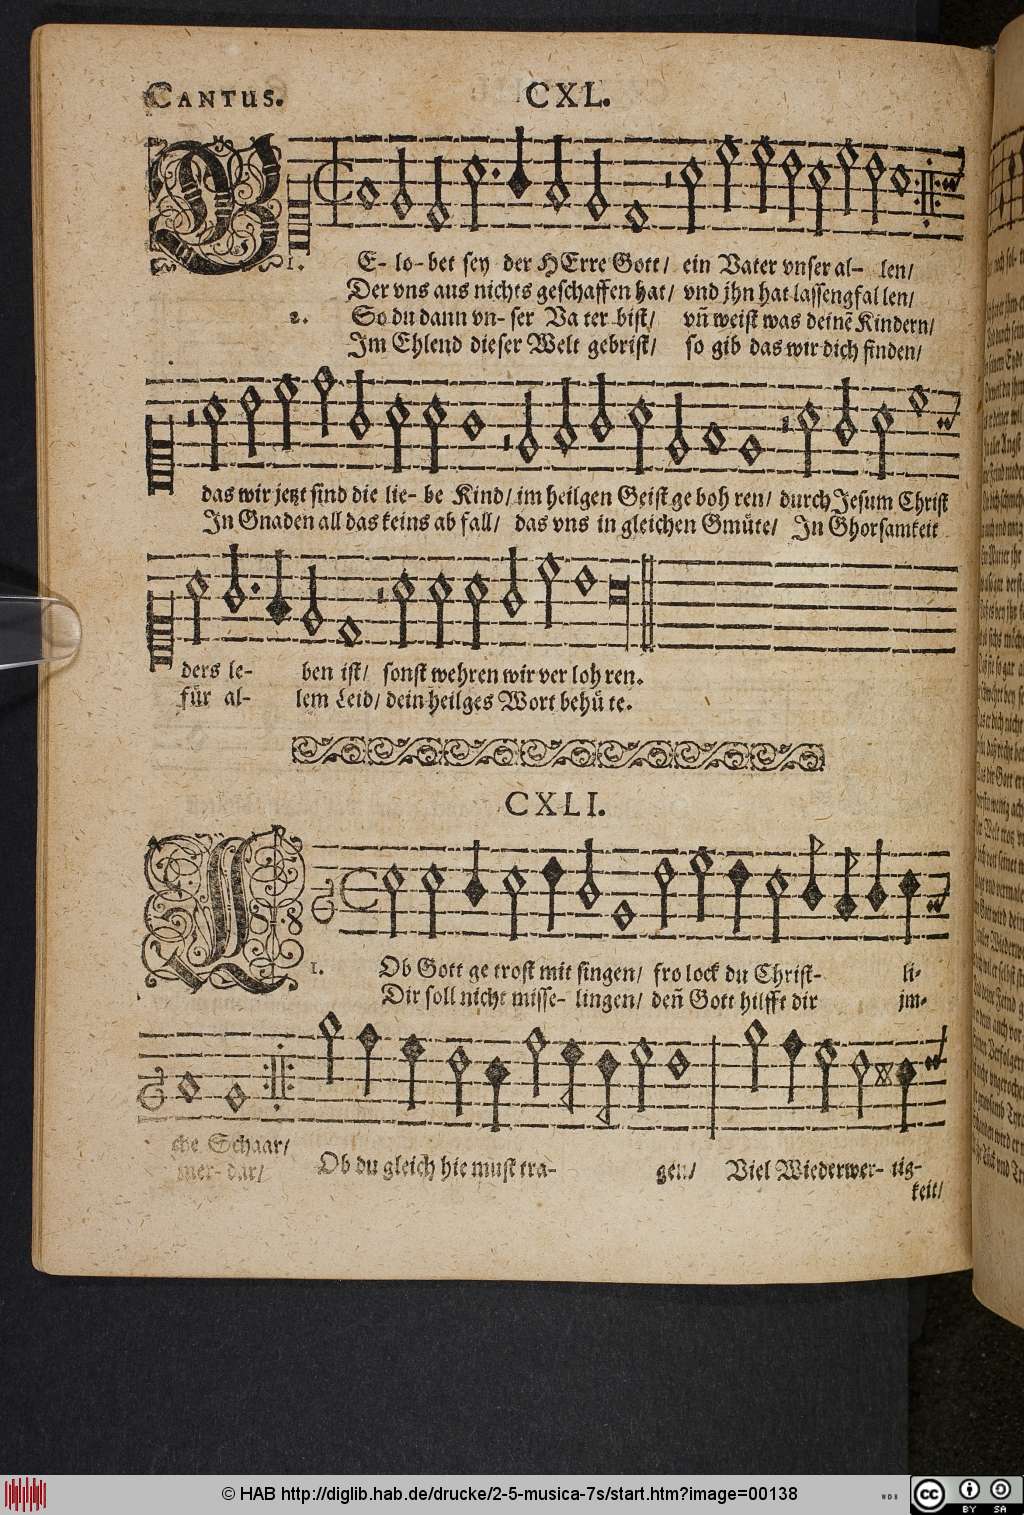 CANTUS. CXL.
GE- lo- bet sey der HErre Gott/ ein Vater vnser al- len/
Der vns aus nichts geschaffen hat/ vnd jhn hat lassengfal len/
2. So du dann vn- ser Va ter bist/ vñ weist was deinẽ Kindern/
Im Ehlend dieser Welt gebrist/ so gib das wir dich finden/
das wir jetzt sind die lie- be Kind/ im heilgen Geist ge boh ren/ durch Jesum Christ
In Gnaden all das keins ab fall/ das vns in gleichen Gmüte/ In Ghorsamkeit
ders le- ben ist/ sonst wehren wir ver loh ren.
für al- lem Leid/ dein heilges Wort behü te.
CXLI.
1. LOb Gott ge trost mit singen/ fro lock du Christ- li-
Dir soll nicht misse- lingen/ deñ Gott hilfft dir jm-
che Schaar/
mer- dar/ Ob du gleich hie must tra- gen/ Viel Wiederwer- tig-
keit/
© HAB http://diglib.hab.de/drucke/2-5-musica-7s/start.htm?image=00138
WDB
cc BY SA